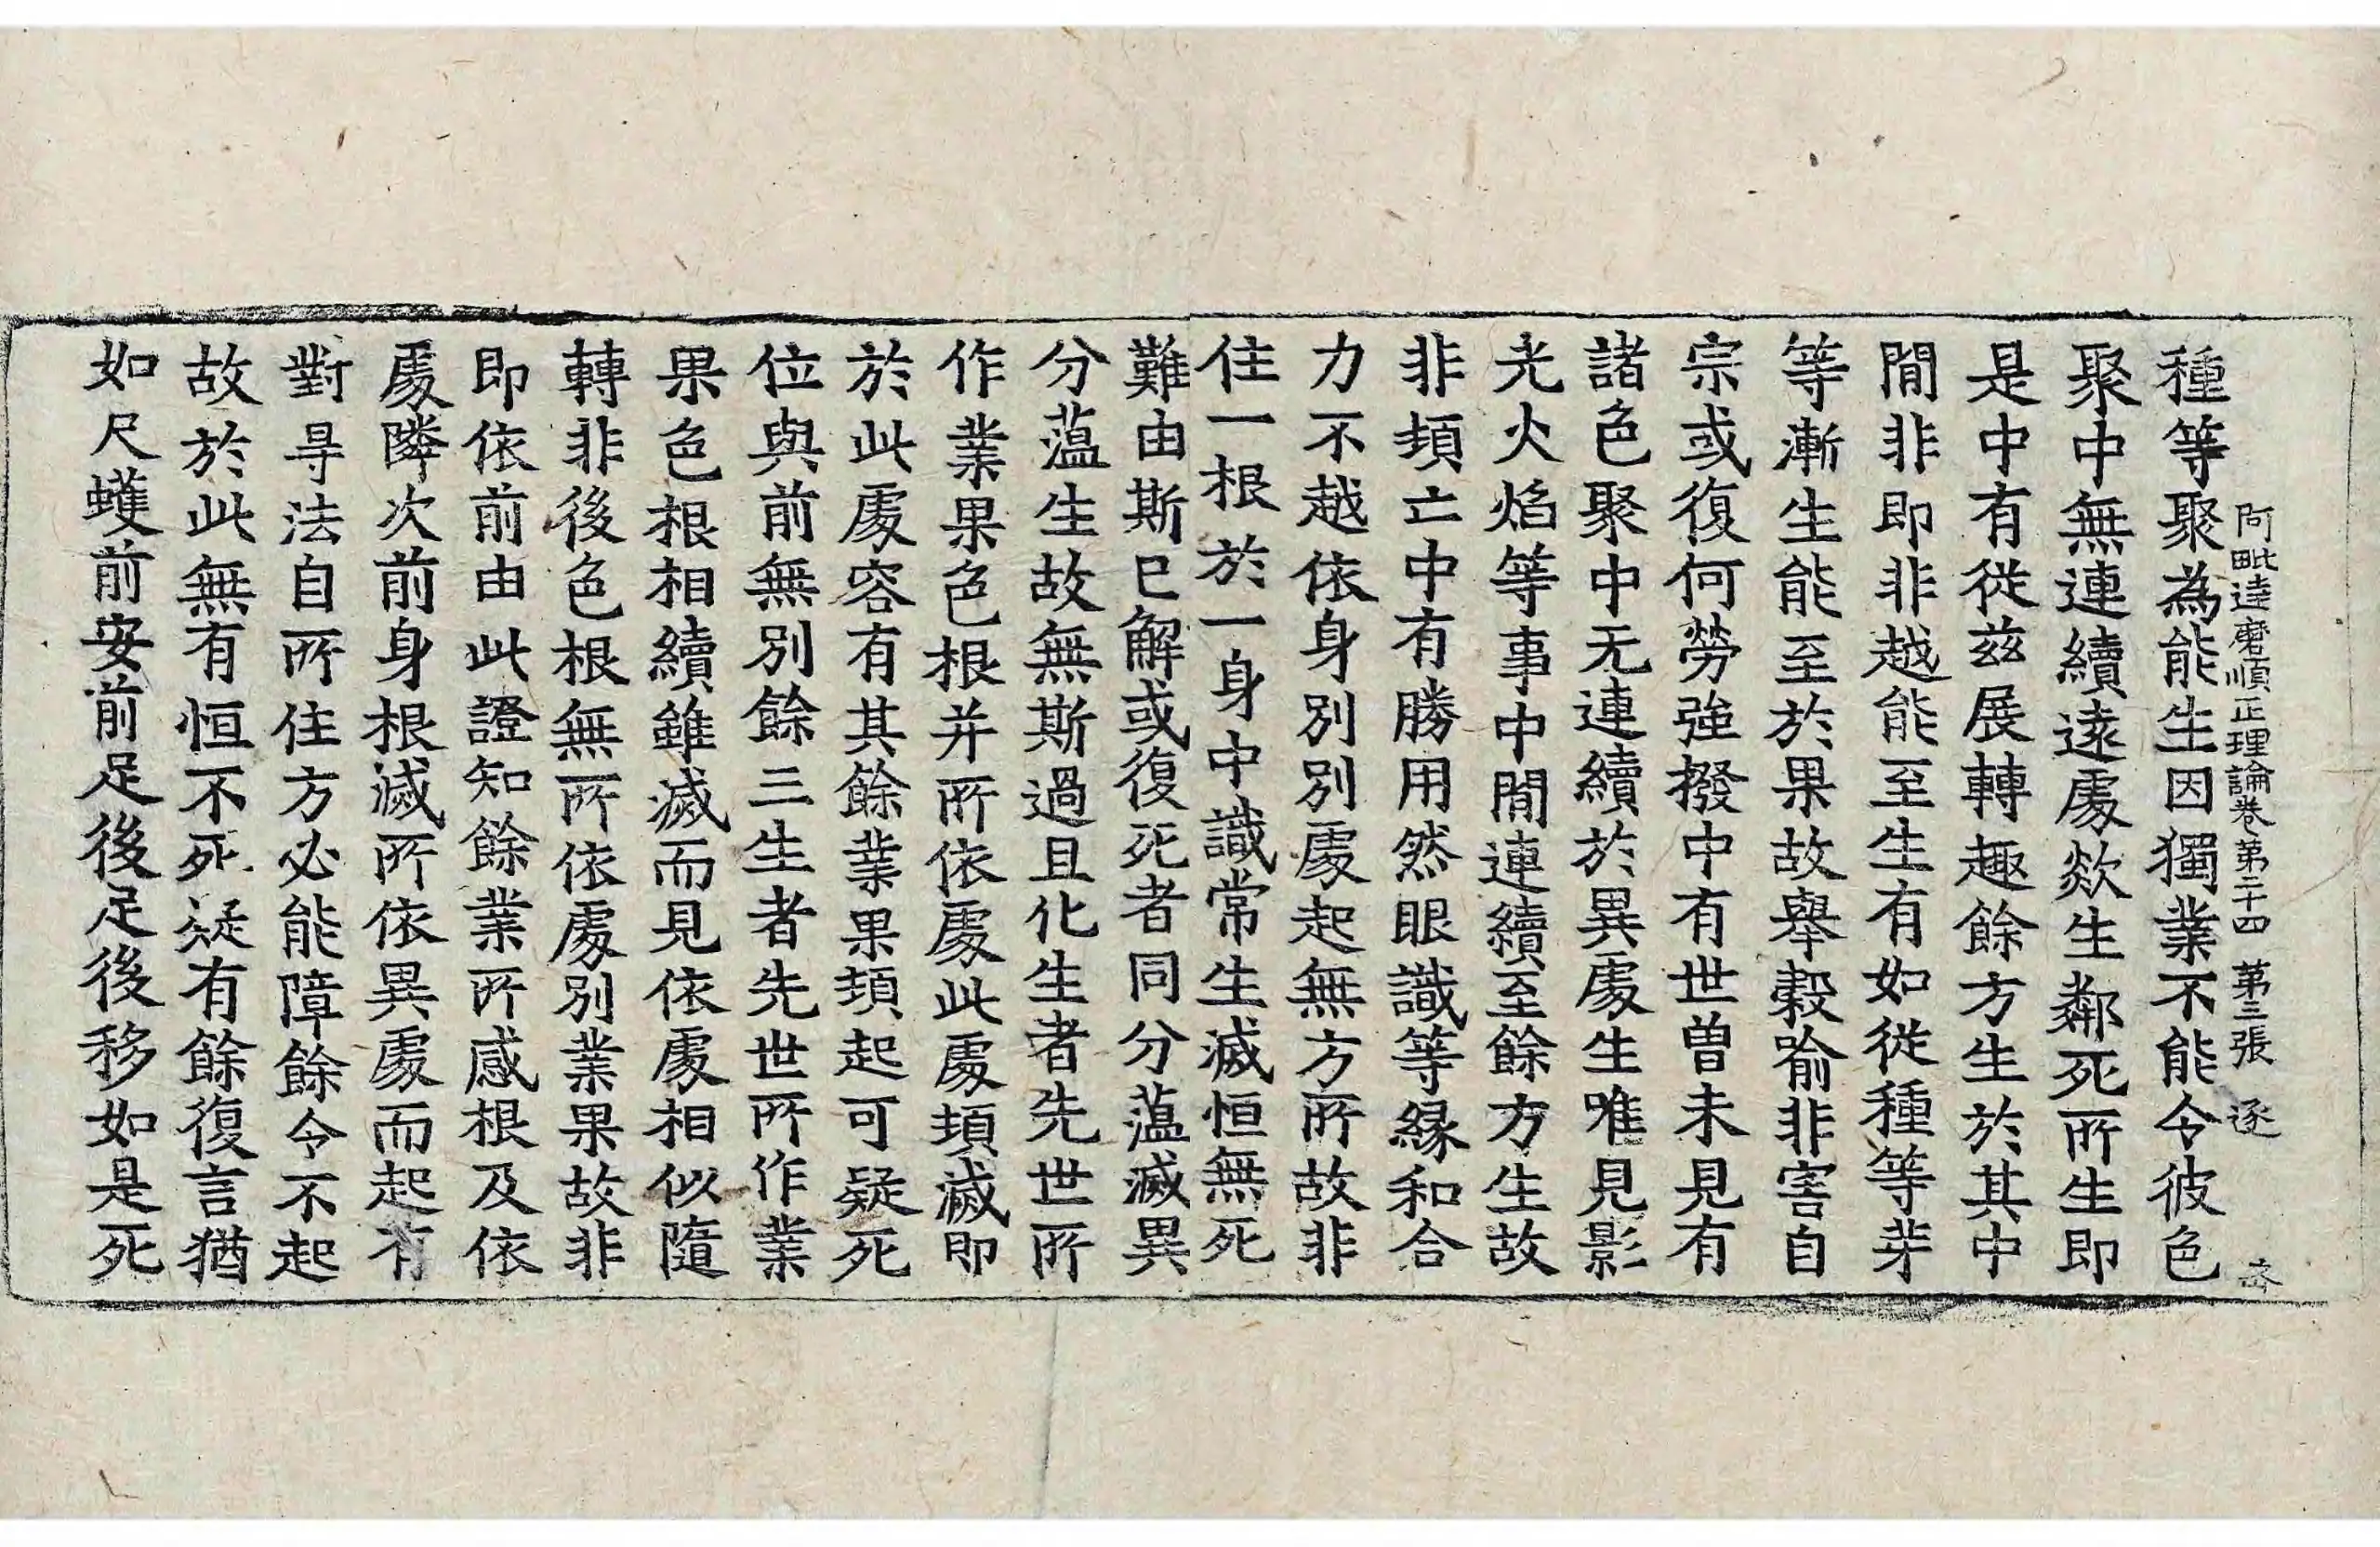 阿毗達磨順正理論卷第二十四 第三張 逐
種等聚為能生因獨業不能令彼色
聚中無連續遠處欻生鄰死所生即
是中有從茲展轉趣餘方生於其中
間非即非越能至生有如從種等芽
等漸生能至於果故舉穀喻非害自
宗或復何勞強撥中有世曾未見有
諸色聚中无連續於異處生唯見影
光火焰等事中間連續至餘方生故
非頓亡中有勝用然眼識等緣和合
力不越依身別別處起無方所故非
住一根於一身中識常生滅恒無死
難由斯已解或復死者同分蕰滅異
分蕰生故無斯過且化生者先世所
作業果色根并所依處此處頓滅即
於此處容有其餘業果頓起可疑死
位與前無別餘三生者先世所作業
果色根相續雖滅而見依處相似隨
轉非後色根無所依處別業果故非
即依前由此證知餘業所感根及依
處隣次前身根滅所依異處而起有
對㝵法自所住方必能障餘令不起
故於此無有恒不死疑有餘復言猶
如尺蠖前安前足後足後移如是死